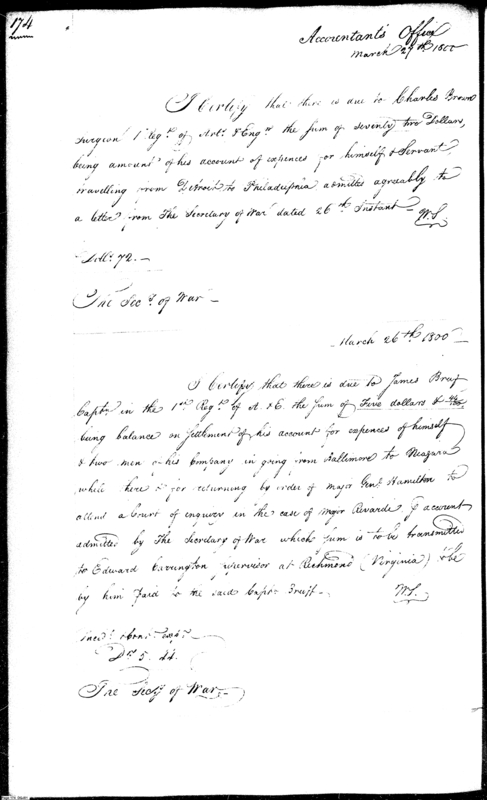 174
Accountants Office
March 27th 1800
I Certify that there is due to Charles Brown
Surgeon 1 Regt. of Arts. & Engrs. the Sum of Seventy two Dollars,
being amount of his account of expences for himself & Servant
travelling from Detroit to Philadelphia admitted agreeably to
a letter from The Secretary of War dated 26th Instant —
W.S.
Dolls. 72. —
The Secy. of War —
March 26th. 1800 —
I Certify that there is due to James Bruff
Captn. in the 1st Regt. of A. & E. the Sum of Five dollars & 44/100
being balance on Settlement of his account for expences of himself
& two men of his Company in going from Baltimore to Niagara
while there & for returning by order of Major Genl. Hamilton to
attend a Court of enquiry in the case of Major Rivardi, account
admitted by The Secretary of War which Sum is to be transmitted
to Edward Carrington Supervisor at Richmond (Virginia) to be
by him paid to the said Captn. Bruff —
W.S.
Ds. 5. 44.
The Secy. of War, —